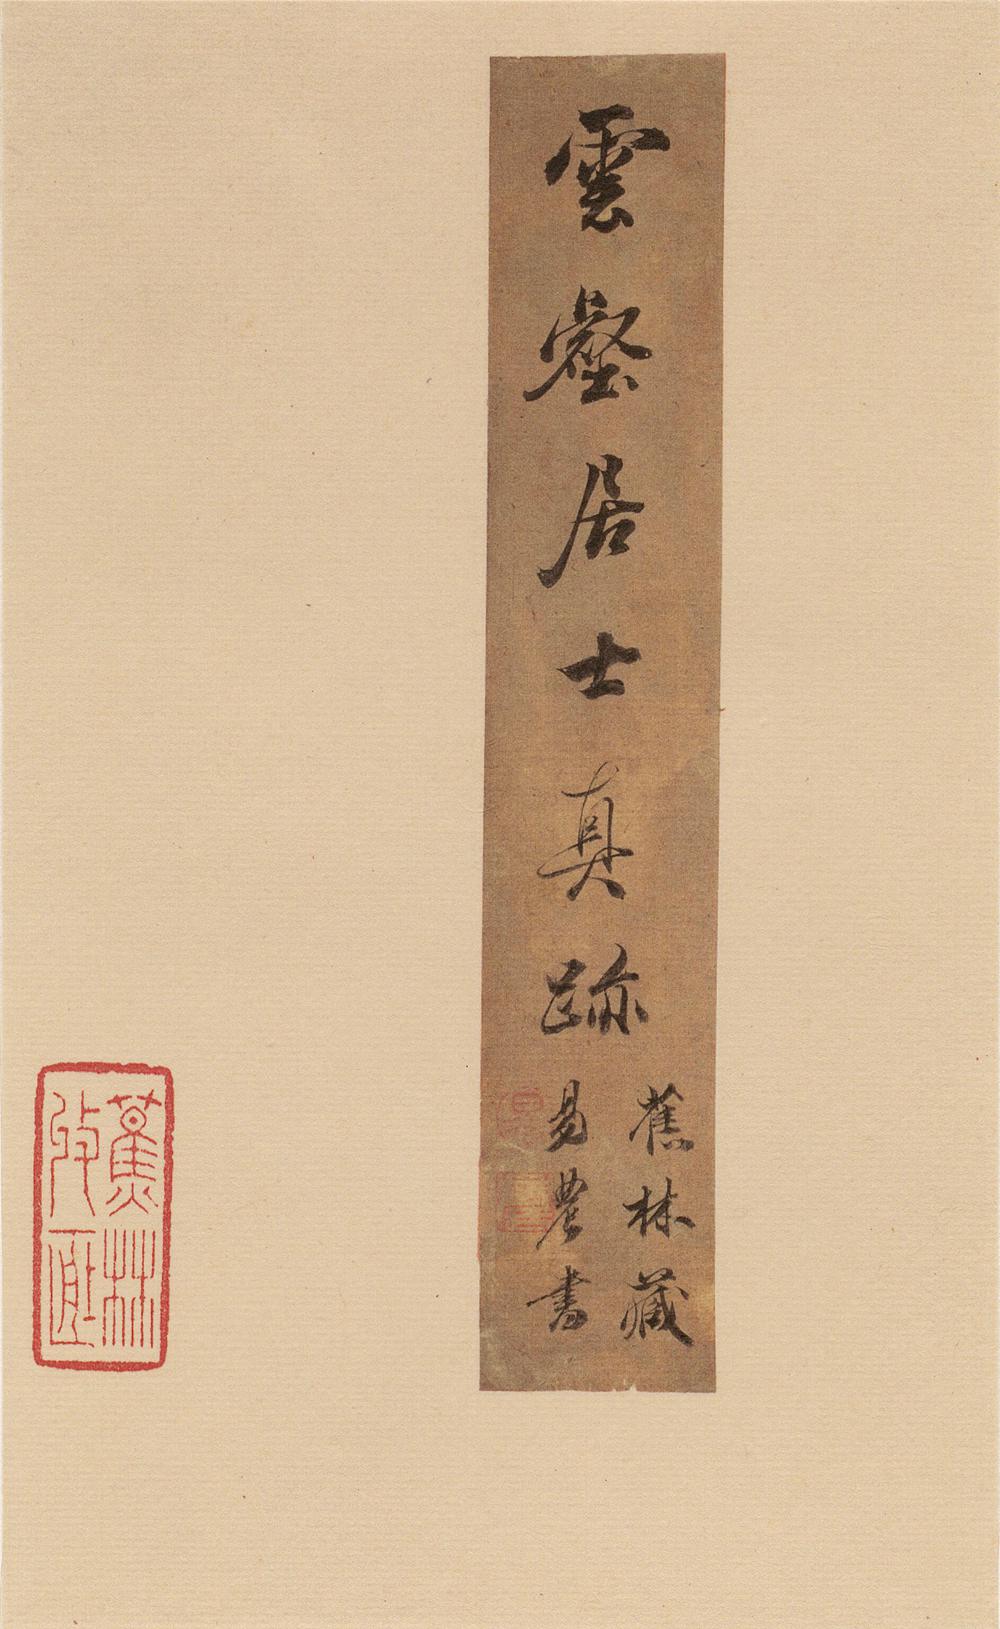 雲壑居士真跡
蕉林藏
易農書
蕉林
收藏